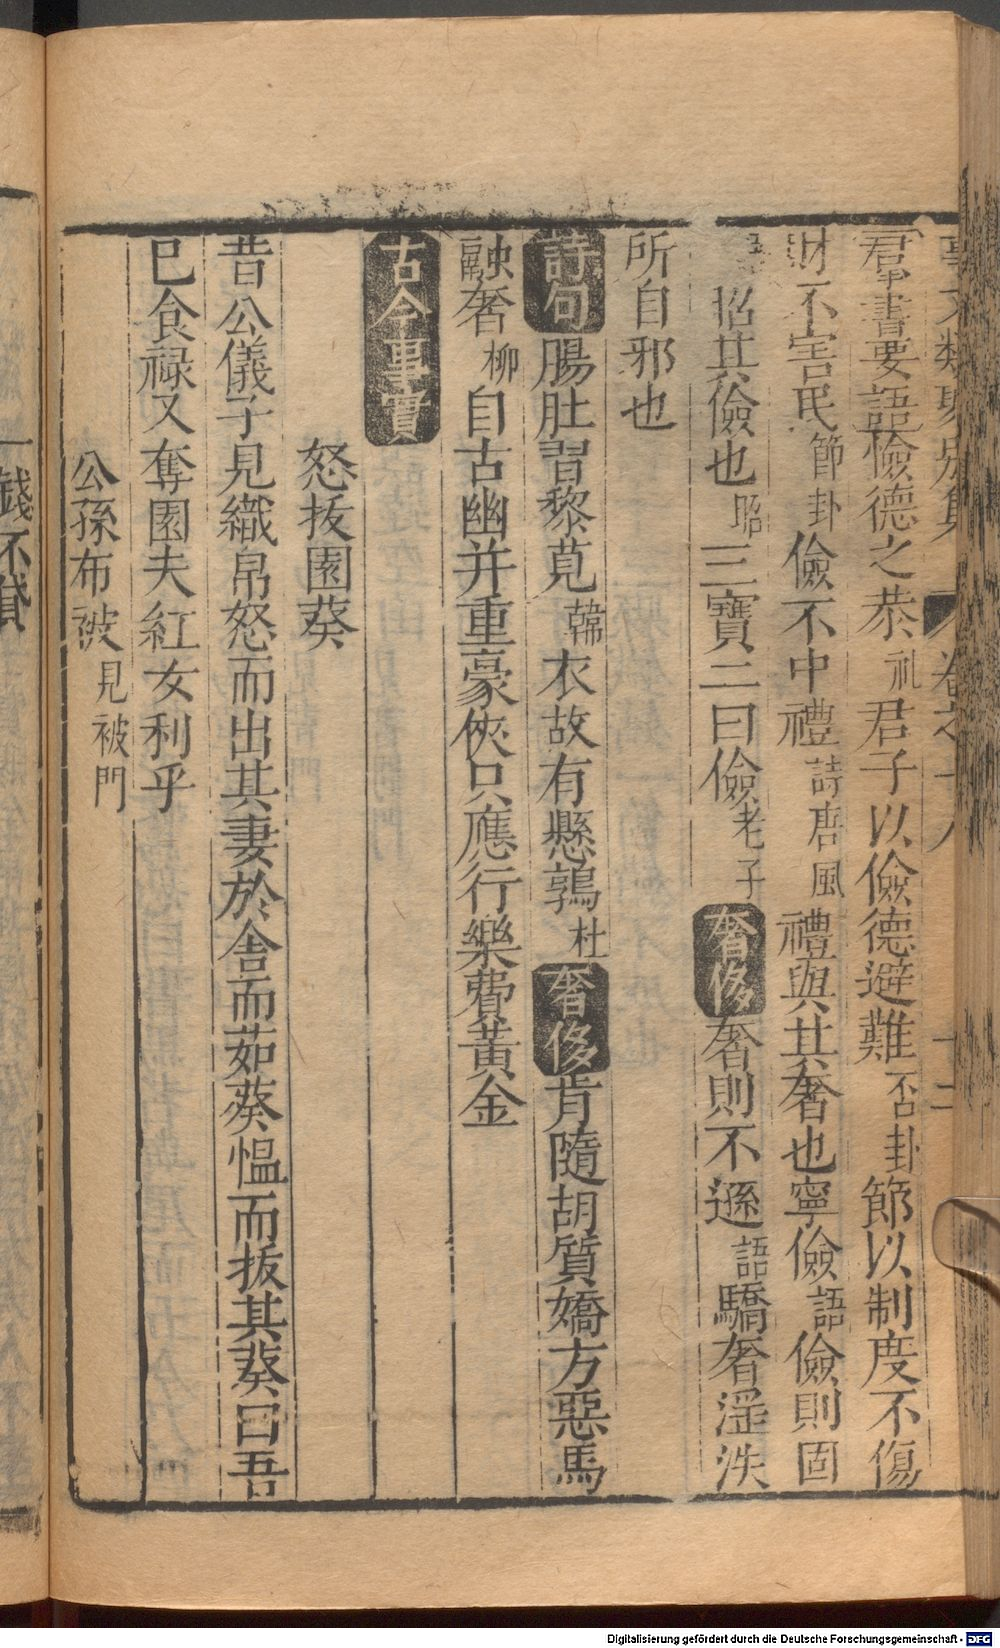 事文類聚別集 卷之十八 十二
羣書要語儉德之恭礼君子以儉德避難否卦節以制度不傷
財不害民節卦儉不中禮詩唐風禮與其奢也寧儉語儉則固
語昭其儉也昭三寶二曰儉老子奢侈奢則不遜語驕奢淫泆
所自邪也
詩句腸肚習黎莧韓衣故有懸鶉杜奢侈肯隨胡質嬌方惡馬
融奢柳自古幽并重豪俠只應行樂費黃金
古今事實
怒拔園葵
昔公儀子見織帛怒而出其妻於舍而茹葵慍而拔其葵曰吾
巳食祿又奪園夫紅女利乎
公孫布被見被門
一錢不貸
Digitalisierung gefördert durch die Deutsche Forschungsgemeinschaft - DFG